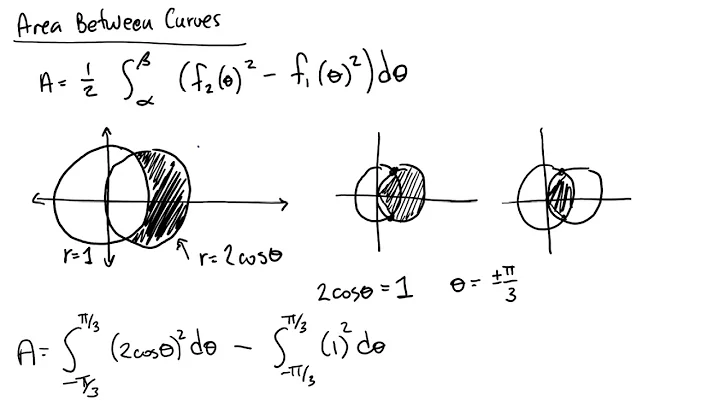 Area Between Curves
A = 1/2 ∫_α^β (f₂(θ)² − f₁(θ)²) dθ
r=1
r=2cosθ
2cosθ = 1 θ = ±π/3
A = ∫_{-π/3}^{π/3} (2cosθ)² dθ − ∫_{-π/3}^{π/3} (1)² dθ